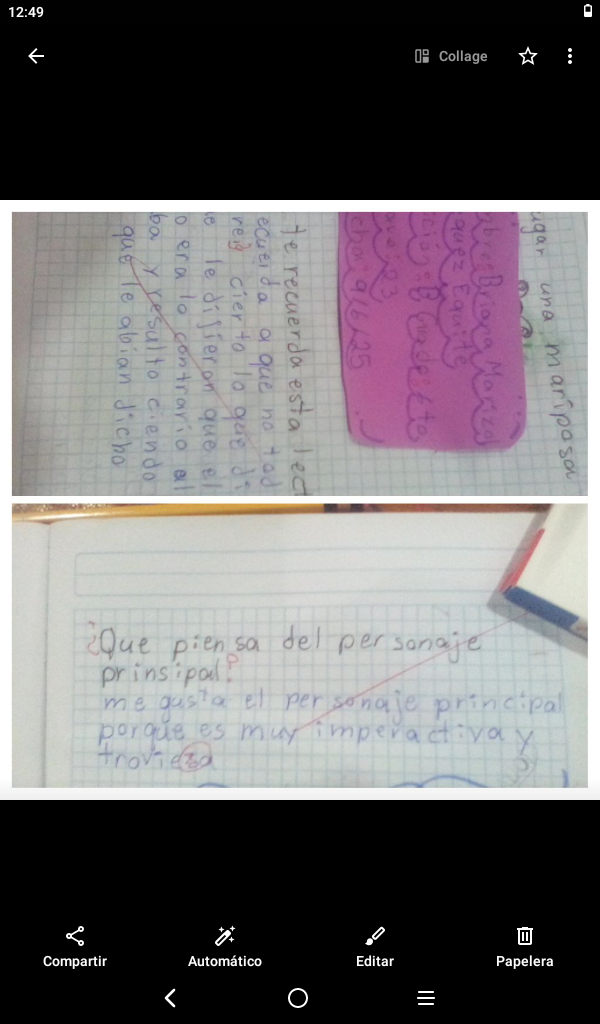 12:49
Collage
ugar una mariposa
Briana Marizol
quez Equite
ción: B Grado: 6to
ma: 23
cha: 9/6/25
te recuerda esta lect
ecuerda a que no tod
reis cierto lo que di
e le dijieron que el
o era lo contrario al
ba y resulto ciendo
que le abian dicho
¿Que piensa del personaje
prinsipal?
me gusta el personaje principal
porque es muy imperactiva y
troviesa
Compartir
Automático
Editar
Papelera